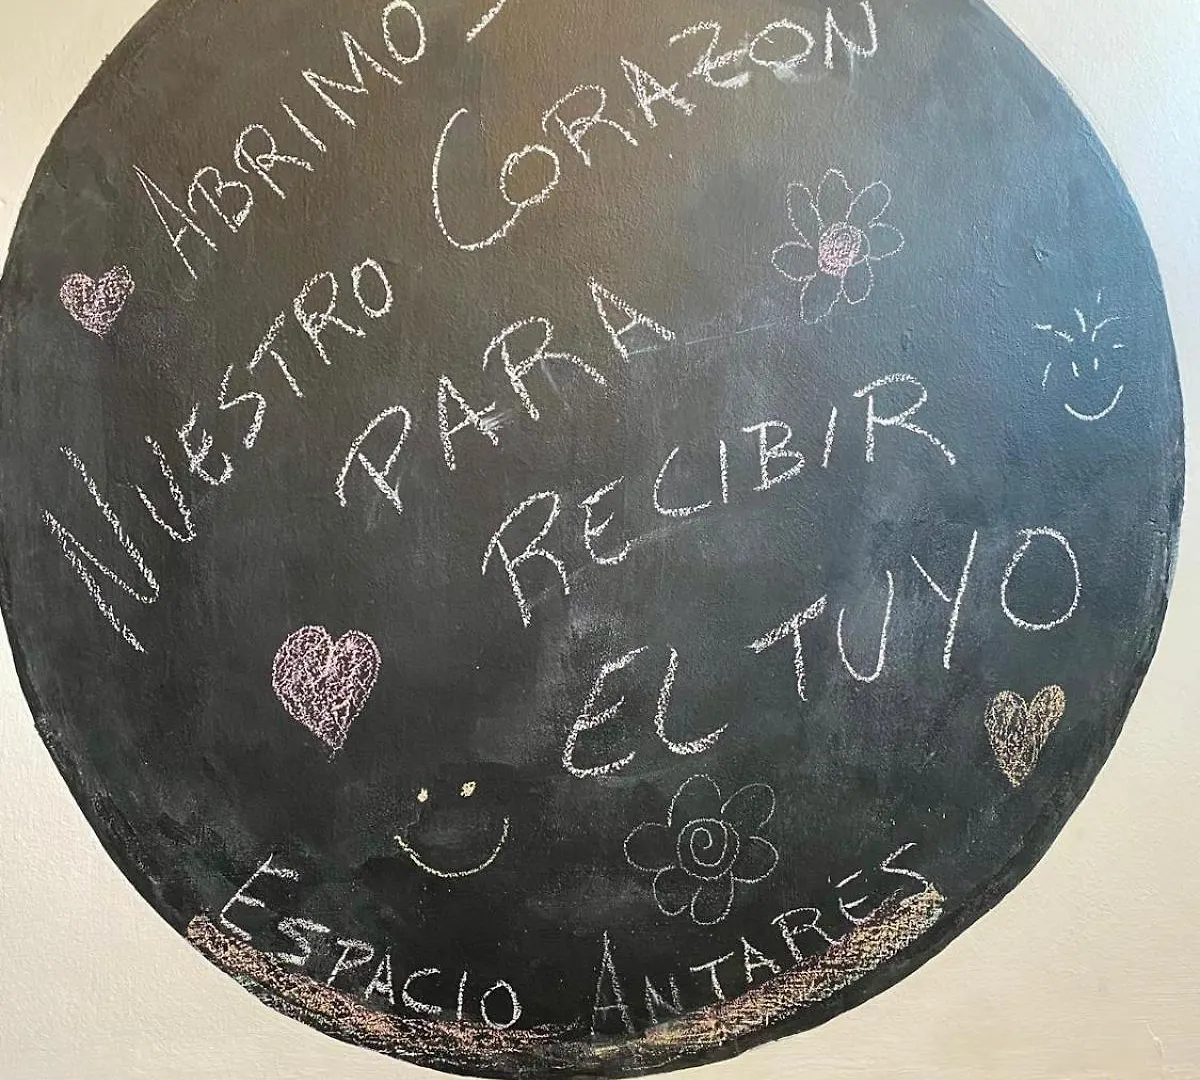 ABRIMOS
NUESTRO CORAZON
PARA
RECIBIR
EL TUYO
ESPACIO ANTARES